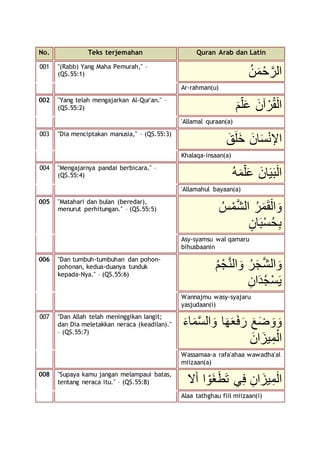 No. Teks terjemahan Quran Arab dan Latin
001 "(Rabb) Yang Maha Pemurah," –
(QS.55:1)
الرَّحْمَنُ
Ar-rahman(u)
002 "Yang telah mengajarkan Al-Qur'an." –
(QS.55:2)
الْقُرْآنَ عَلَّمَ
'Allamal quraan(a)
003 "Dia menciptakan manusia," – (QS.55:3)
الإنْسَانَ خَلَقَ
Khalaqa-insaan(a)
004 "Mengajarnya pandai berbicara." –
(QS.55:4)
الْبَيَانَ عَلَّمَهُ
'Allamahul bayaan(a)
005 "Matahari dan bulan (beredar),
menurut perhitungan." – (QS.55:5)
وَالْقَمَرُ الشَّمْسُ
بِحُسْبَانٍ
Asy-syamsu wal qamaru
bihusbaanin
006 "Dan tumbuh-tumbuhan dan pohon-
pohonan, kedua-duanya tunduk
kepada-Nya." – (QS.55:6)
وَالشَّجَرُ وَالنَّجْمُ
يَسْجُدَانِ
Wannajmu wasy-syajaru
yasjudaan(i)
007 "Dan Allah telah meninggikan langit;
dan Dia meletakkan neraca (keadilan)."
– (QS.55:7)
وَوَضَعَ رَفَعَهَا وَالسَّمَاءَ
الْمِيزَانَ
Wassamaa-a rafa'ahaa wawadha'al
miizaan(a)
008 "Supaya kamu jangan melampaui batas,
tentang neraca itu." – (QS.55:8)
الْمِيزَانِ فِي تَطْغَوْا أَلا
Alaa tathghau fiil miizaan(i)